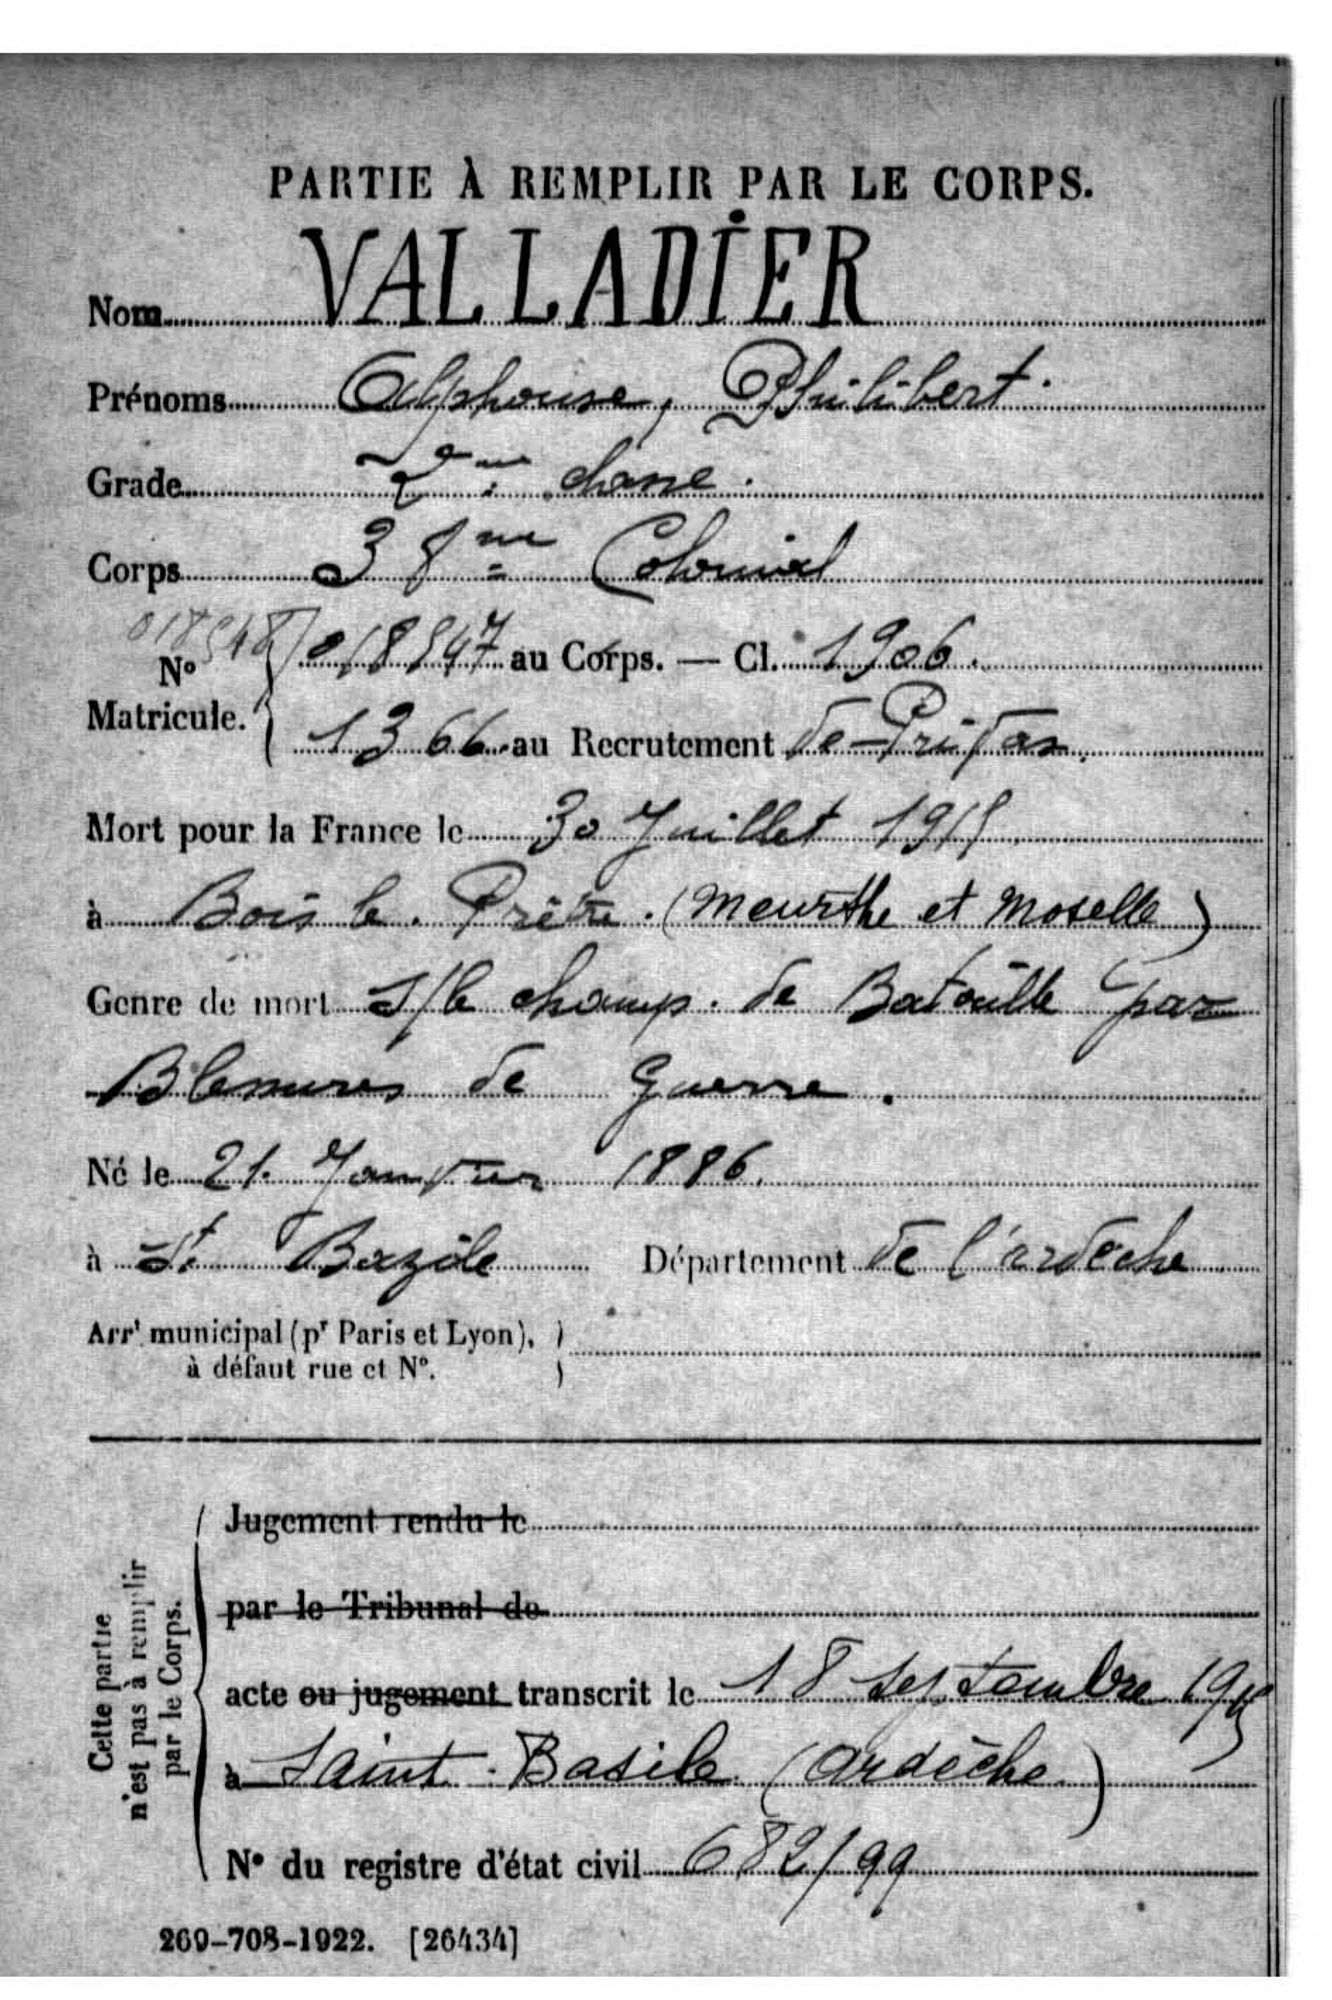 PARTIE À REMPLIR PAR LE CORPS.
Nom VALLADIER
Prénoms Alphonse, Philibert.
Grade 2me classe.
Corps 38me Colonial
018548
No 018547 au Corps. — Cl. 1906.
Matricule. 1366 au Recrutement de Privas.
Mort pour la France le 30 Juillet 1915
à Bois le Prêtre. (Meurthe et Moselle)
Genre de mort S/le champ. de Bataille par
Blessures de Guerre.
Né le 21 Janvier 1886.
à St Bazile Département de l'ardèche
Arrt municipal (pr Paris et Lyon),
à défaut rue et No.
Cette partie
n'est pas à remplir
par le Corps.
Jugement rendu le
par le Tribunal de
acte ou jugement transcrit le 18 septembre 1915
à Saint-Basile (Ardèche)
No du registre d'état civil 682/99
269-708-1922. [26434]